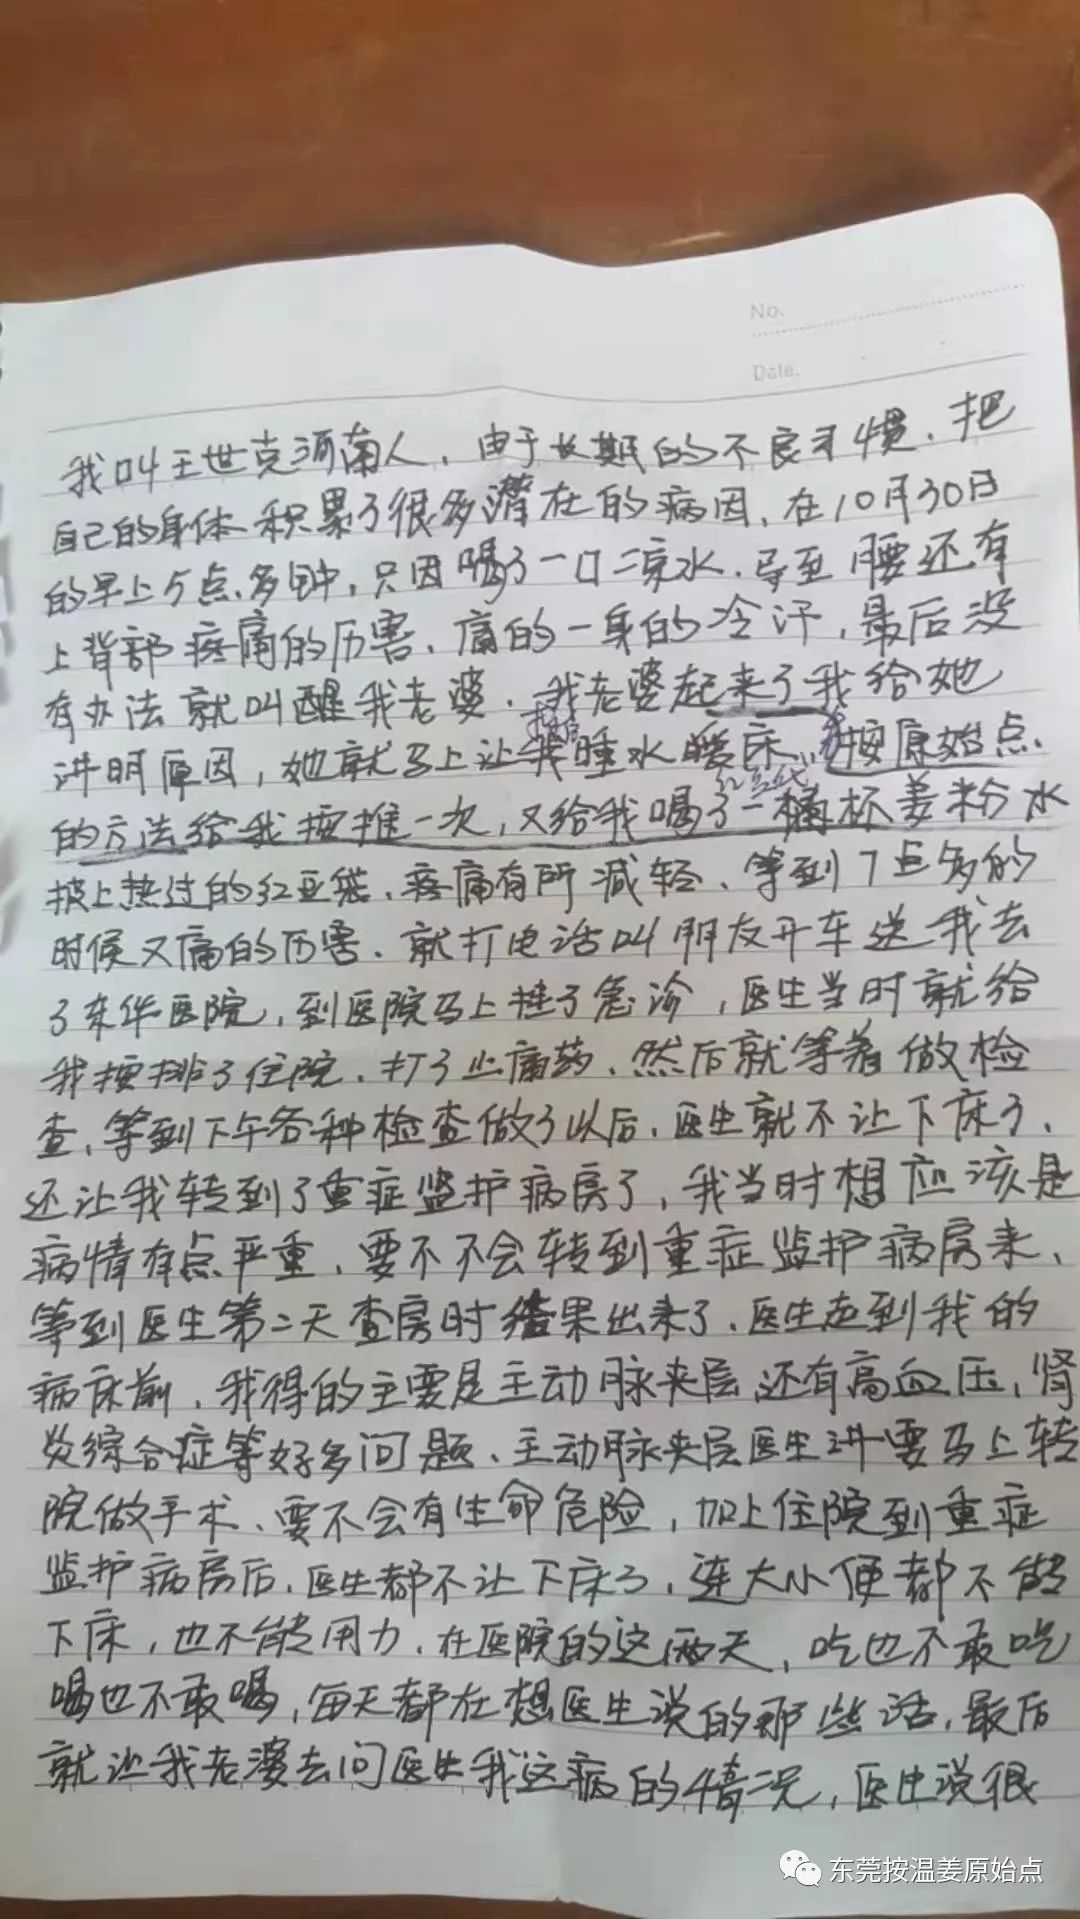 No.
Date.
我叫王世克河南人，由于长期的不良习惯，把
自己的身体积累了很多潜在的病因，在10月30日
的早上5点多钟，只因喝了一口凉水，导至腰还有
上背部疼痛的历害，痛的一身的冷汗，最后没
有办法就叫醒我老婆，我老婆起来了我给她
讲明原因，她就马上让我睡水暖床，按原始点
的方法给我按推一次，又给我喝了一杯姜粉水
披上热过的红豆袋，疼痛有所减轻，等到7点多的
时候又痛的历害，就打电话叫朋友开车送我去
了东华医院，到医院马上挂了急诊，医生当时就给
我按排了住院，打了止痛药，然后就等着做检
查，等到下午各种检查做了以后，医生就不让下床了，
还让我转到了重症监护病房了，我当时想应该是
病情有点严重，要不不会转到重症监护病房来，
等到医生第二天查房时结果出来了，医生走到我的
病床前，我得的主要是主动脉夹层，还有高血压，肾
炎综合症等好多问题，主动脉夹层医生讲要马上转
院做手术，要不会有生命危险，加上住院到重症
监护病房后，医生都不让下床了，连大小便都不能
下床，也不能用力，在医院的这两天，吃也不敢吃
喝也不敢喝，每天都在想医生说的那些话，最后
就让我老婆去问医生我这病的情况，医生说很
东莞按温姜原始点